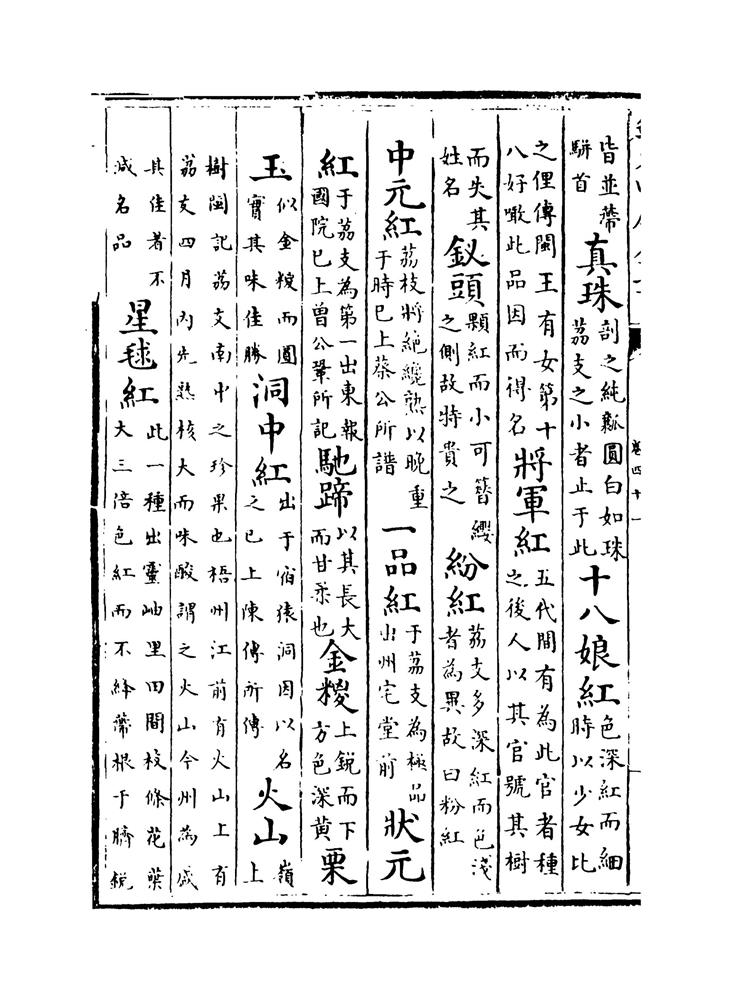 皆並蔕駢首 真珠 剖之純瓤圓白如珠荔支之小者止于此 十八娘紅 色深紅而細時以少女比
之俚傳閩王有女第十八好噉此品因而得名 將軍紅 五代間有為此官者種之後人以其官號其樹
而失其姓名 釵頭 顆紅而小可簮纓之側故特貴之 紛紅 荔支多深紅而色淺者為異故曰粉紅
中元紅 荔枝將絶纔熟以晚重于時已上蔡公所譜 一品紅 于荔支為極品出州宅堂前 狀元
紅 于荔支為第一出東報國院已上曾公鞏所記 馳蹄 以其長大而甘柔也 金糉 上鋭而下方色深黄 栗
玉 似金糉而圓實其味佳勝 洞中紅 出于宿猿洞因以名之已上陳傳所傳 火山 嶺上
樹閩記荔支南中之珍果也梧州江前有火山上有荔支四月內先熟核大而味酸謂之火山今州為盛
其佳者不減名品 星毬紅 此一種出靈岫里田間枝條花葉大三倍色紅而不絳蔕根于臍鋭
卷四十一